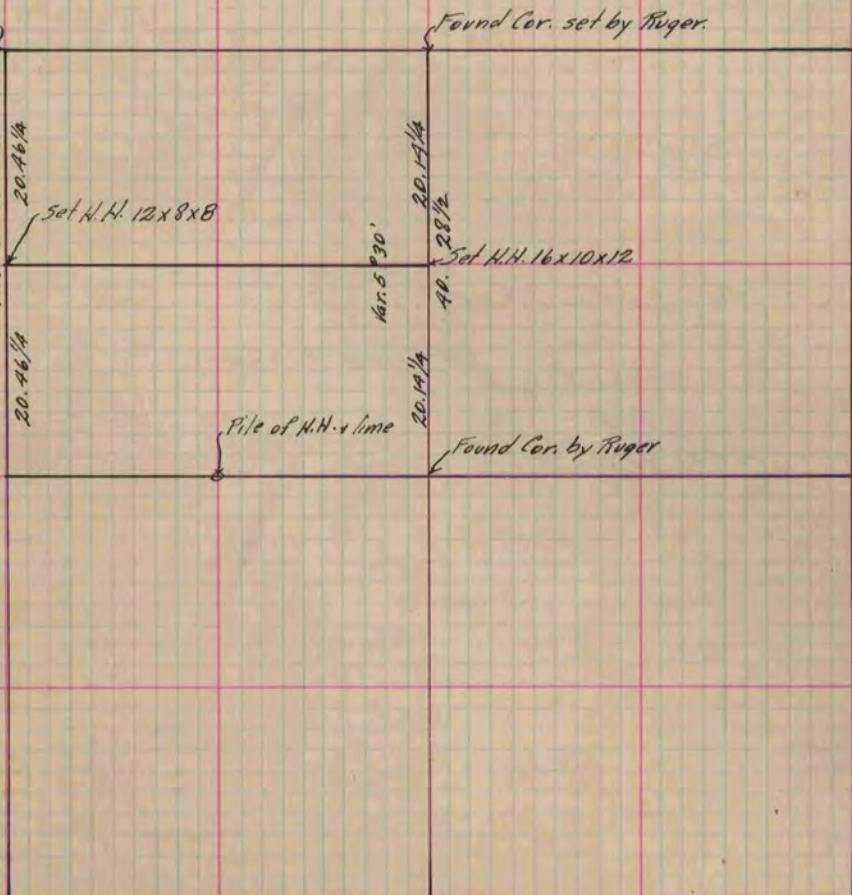 Found Cor. set by Ruger.
20.46 1/4
20.14 1/4
Set H.H. 12x8x8
Var. 5°30'
40. 28 1/2
Set H.H. 16x10x12
20.46 1/4
20.14 1/4
Pile of H.H. & lime
Found Cor. by Ruger